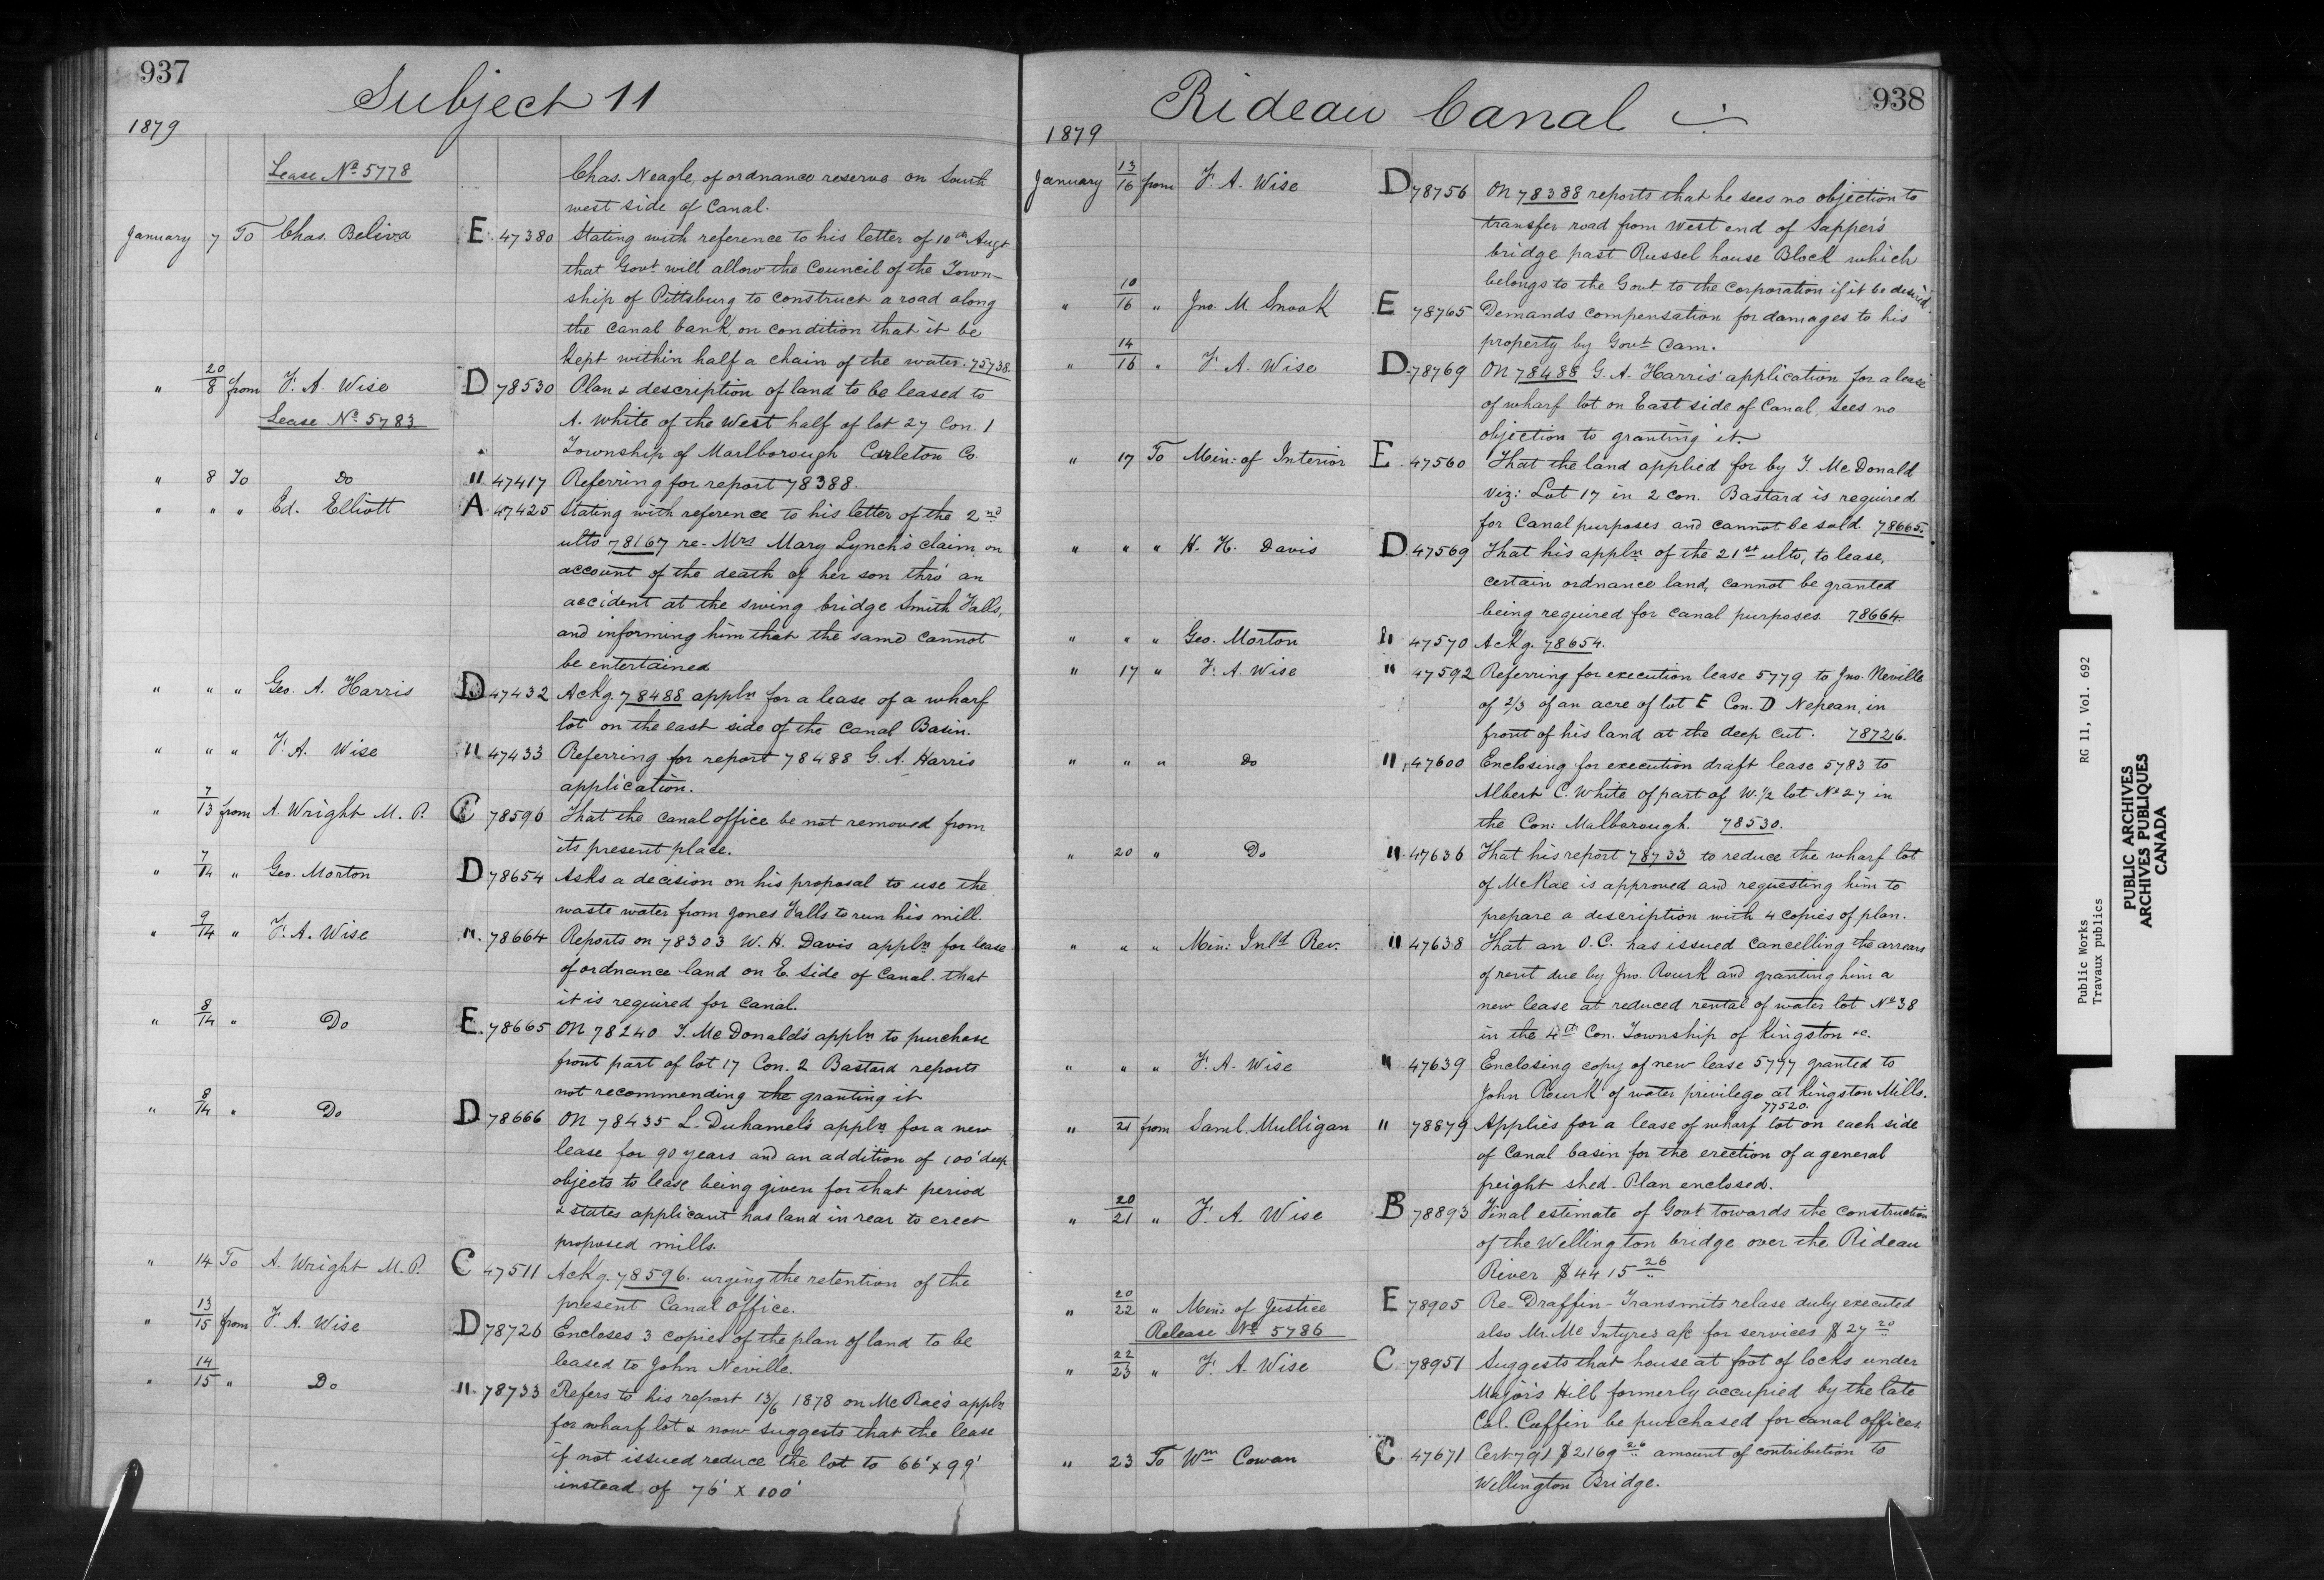 937
Subject 11
1879
Lease No 5778
Chas. Neagle, of ordnance reserve on South
west side of Canal.
January 7 To Chas. Beliva E 47380 Stating with reference to his letter of 10th Augt
that Govt will allow the Council of the Town-
ship of Pittsburg to construct a road along
the canal bank, on condition that it be
kept within half a chain of the water. 75738.
" 20/8 from F. A. Wise D 78530 Plan & description of land to be leased to
Lease No 5783
A. White of the West half of lot 27 Con. 1
Township of Marlborough Carleton Co.
" 8 To Do " 47417 Referring for report 78388.
" " " Ed. Elliott A 47425 Stating with reference to his letter of the 2nd
ulto 78167 re- Mrs Mary Lynch's claim, on
account of the death of her son thro' an
accident at the swing bridge Smith Falls,
and informing him that the same cannot
be entertained
" " " Geo. A. Harris D 47432 Ackg. 78488 appln for a lease of a wharf
lot on the east side of the Canal Basin.
" " " F. A. Wise " 47433 Referring for report 78488 G. A. Harris
application.
" 7/13 from A. Wright M.P. C 78596 That the canal office be not removed from
its present place.
" 7/14 " Geo. Morton D 78654 Asks a decision on his proposal to use the
waste water from Jones Falls to run his mill.
" 9/14 " F. A. Wise " 78664 Reports on 78303 W. H. Davis appln for lease
of ordnance land on E. side of Canal. that
it is required for Canal.
" 8/14 " Do E 78665 On 78240 T. McDonald's appln to purchase
front part of lot 17 Con. 2 Bastard reports
not recommending the granting it
" 8/14 " Do D 78666 On 78435 L. Duhamel's appln for a new
lease for 90 years and an addition of 100' deep
objects to lease being given for that period
& states applicant has land in rear to erect
proposed mills.
" 14 To A. Wright M.P. C 47511 Ackg. 78596. urging the retention of the
present Canal office.
" 13/15 from F. A. Wise D 78726 Encloses 3 copies of the plan of land to be
leased to John Neville.
" 14/15 " Do " 78733 Refers to his report 13/6 1878 on McRae's appln
for wharf lot & now suggests that the lease
if not issued reduce the lot to 66' x 99'
instead of 76' x 100'
938
Rideau Canal
1879
January 13/16 from F. A. Wise D 78756 On 78388 reports that he sees no objection to
transfer road from West end of Sapper's
bridge past Russel house Block which
belongs to the Govt to the Corporation if it be desired.
" 10/16 " Jno. M. Snook E 78765 Demands compensation for damages to his
property by Govt Cam.
" 14/16 " F. A. Wise D 78769 On 78488 G. A. Harris' application for a lease
of wharf lot on East side of Canal, sees no
objection to granting it.
" 17 To Min: of Interior E 47560 That the land applied for by T. McDonald
viz: Lot 17 in 2 con. Bastard is required
for Canal purposes and cannot be sold 78665.
" " " H. H. Davis D 47569 That his appln of the 21st ulto, to lease,
certain ordnance land, cannot be granted
being required for canal purposes. 78664
" " " Geo. Morton " 47570 Ackg. 78654.
" 17 " F. A. Wise " 47592 Referring for execution lease 5779 to Jno. Neville
of 2/3 of an acre of lot E Con. D Nepean, in
front of his land at the deep cut. 78726.
" " " Do " 47600 Enclosing for execution draft lease 5783 to
Albert C. White of part of W. 1/2 lot No 27 in
the Con: Malborough. 78530.
" 20 " Do " 47636 That his report 78733 to reduce the wharf lot
of McRae is approved and requesting him to
prepare a description with 4 copies of plan.
" " " Min: Inld Rev. " 47638 That an O.C. has issued cancelling the arrears
of rent due by Jno. Rourk and granting him a
new lease at reduced rental of water lot No 38
in the 4th Con. Township of Kingston &c.
" " " F. A. Wise " 47639 Enclosing copy of new lease 5777 granted to
John Rourk of water privilege at Kingston Mills.
77520.
" 21 from Saml. Mulligan " 78879 Applies for a lease of wharf lot on each side
of Canal basin for the erection of a general
freight shed. Plan enclosed.
" 20/21 " F. A. Wise B 78893 Final estimate of Govt towards the construction
of the Wellington bridge over the Rideau
River $4415 26
" 20/22 " Min: of Justice E 78905 Re- Draffin- Transmits relase duly executed
Release No 5786
also Mr. McIntyres a/c for services $27 20
" 22/23 " F. A. Wise C 78951 Suggests that house at foot of locks under
Major's Hill formerly occupied by the late
Col. Coffin be purchased for canal offices.
" 23 To Wm Cowan C 47671 Cert 791 $2169 26 amount of contribution to
Wellington Bridge.
Public Works RG 11, Vol. 692
Travaux publics
PUBLIC ARCHIVES
ARCHIVES PUBLIQUES
CANADA